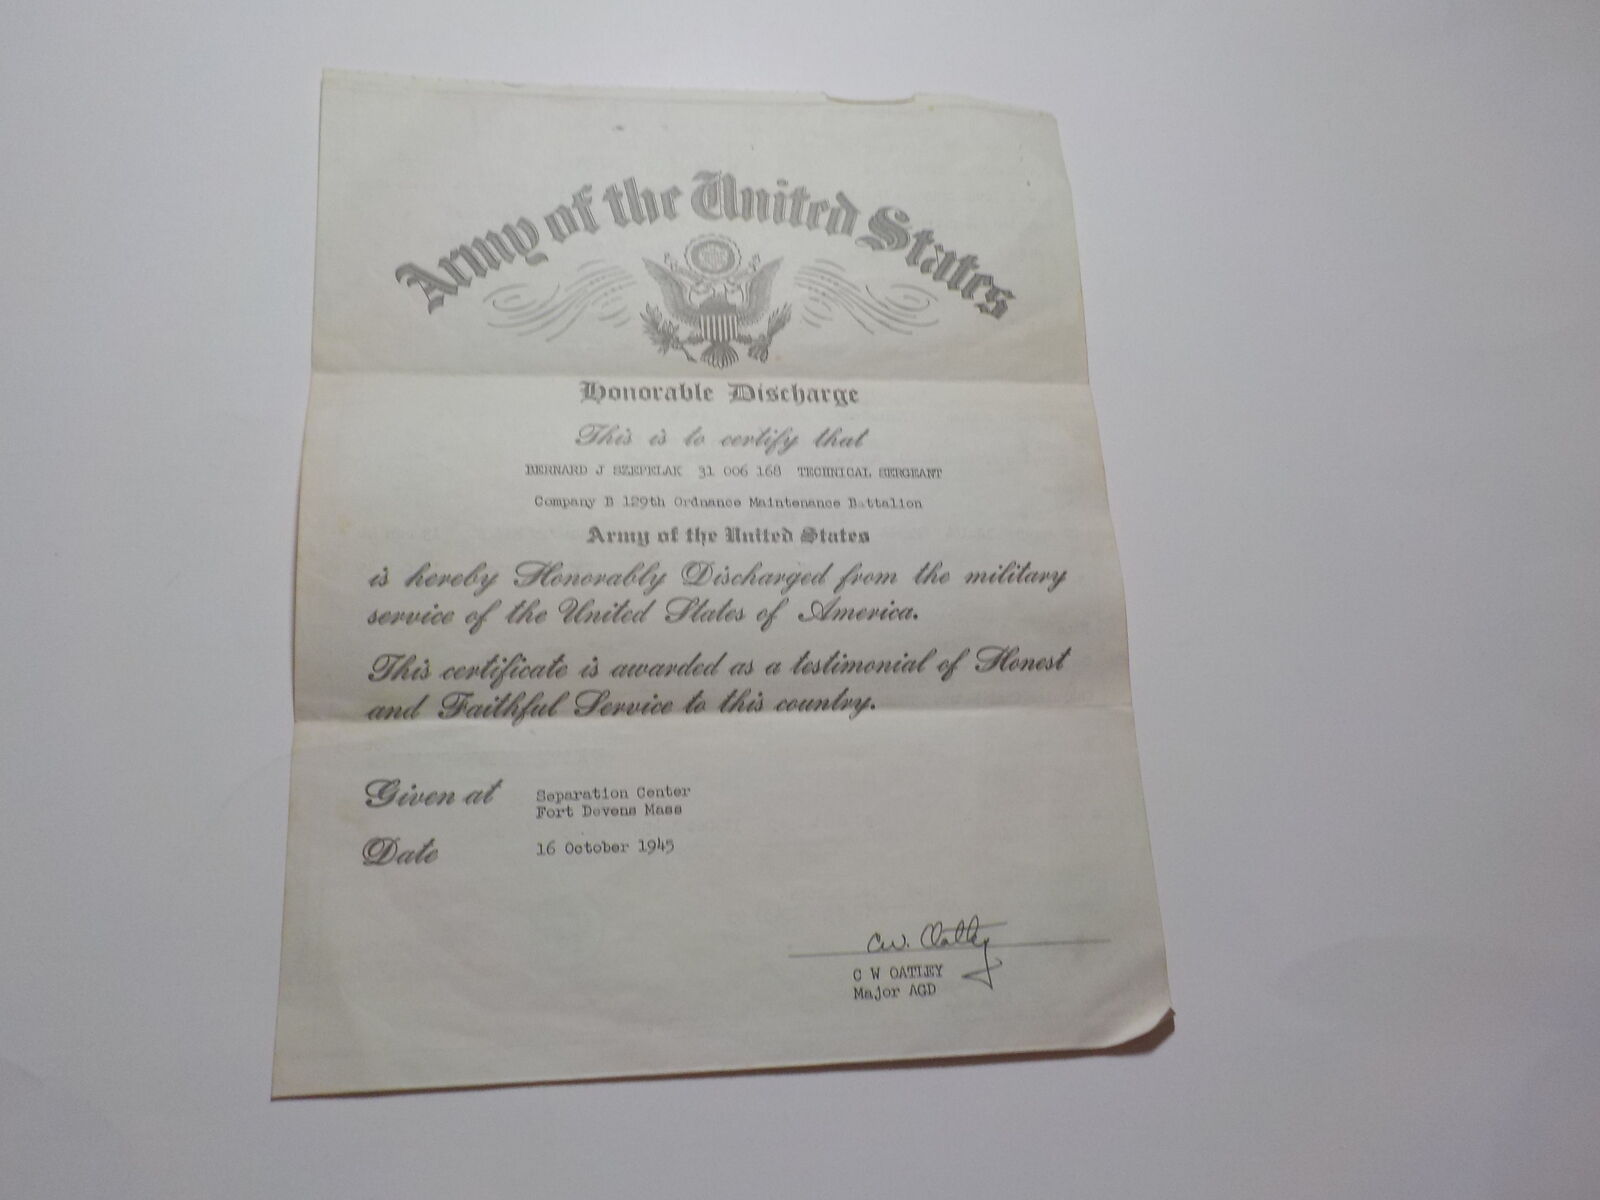 Army of the United States
Honorable Discharge
This is to certify that
BERNARD J SZEPELAK 31 006 168 TECHNICAL SERGEANT
Company B 129th Ordnance Maintenance Battalion
Army of the United States
is hereby Honorably Discharged from the military
service of the United States of America.
This certificate is awarded as a testimonial of Honest
and Faithful Service to this country.
Given at Separation Center
Fort Devens Mass
Date 16 October 1945
C.W. Oatley
C W OATLEY
Major AGD